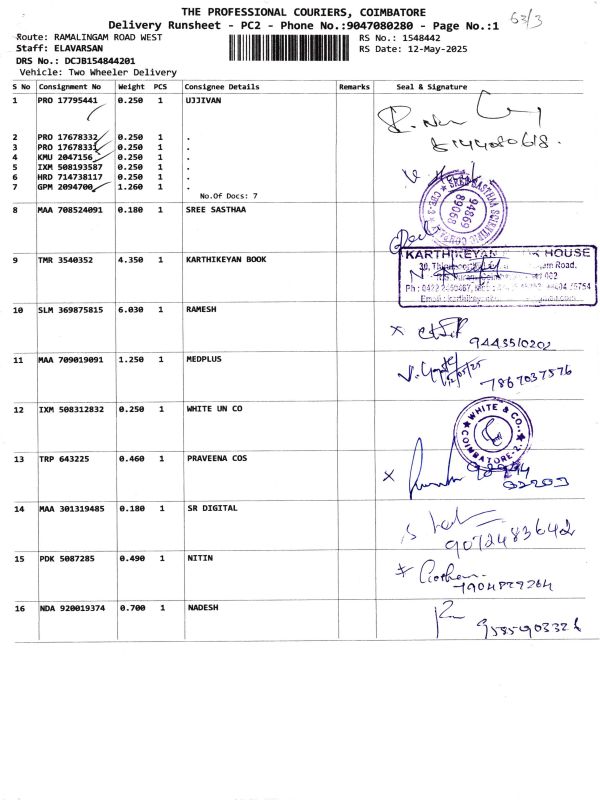 THE PROFESSIONAL COURIERS, COIMBATORE
Delivery Runsheet - PC2 - Phone No.:9047080280 - Page No.:1
63/3
Route: RAMALINGAM ROAD WEST RS No.: 1548442
Staff: ELAVARSAN RS Date: 12-May-2025
DRS No.: DCJB154844201
Vehicle: Two Wheeler Delivery
S No Consignment No Weight PCS Consignee Details Remarks Seal & Signature
1 PRO 17795441 0.250 1 UJJIVAN
2 PRO 17678332 0.250 1 .
3 PRO 17678331 0.250 1 .
4 KMU 2047156 0.250 1 .
5 IXM 508193587 0.250 1 .
6 HRD 714738117 0.250 1 .
7 GPM 2094700 1.260 1 .
No.Of Docs: 7
8 MAA 708524091 0.180 1 SREE SASTHAA
94869
89068
9 TMR 3540352 4.350 1 KARTHIKEYAN BOOK
KARTHIKEYAN HOUSE
10 SLM 369875815 6.030 1 RAMESH
9443510202
11 MAA 709019091 1.250 1 MEDPLUS
12/05/25
7867037576
12 IXM 508312832 0.250 1 WHITE UN CO
WHITE & CO.,
COIMBATORE-2.
13 TRP 643225 0.460 1 PRAVEENA COS
14 MAA 301319485 0.180 1 SR DIGITAL
9072483642
15 PDK 5087285 0.490 1 NITIN
7904829264
16 NDA 920019374 0.700 1 NADESH